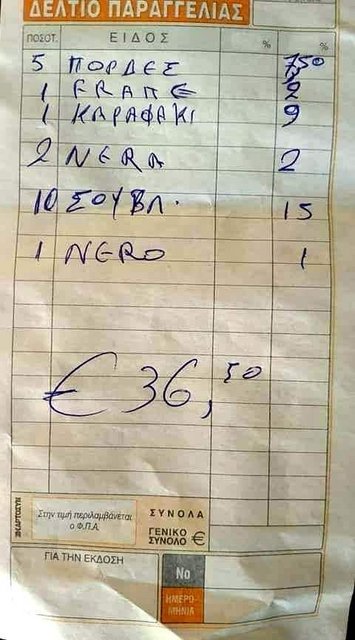 ΔΕΛΤΙΟ ΠΑΡΑΓΓΕΛΙΑΣ
ΠΟΣΟΤ. ΕΙΔΟΣ % %
5 ΠΟΡΔΕΣ 7,50
1 FRAΠΕ 2
1 ΚΑΡΑΦΑΚΙ 9
2 ΝERA 2
10 ΣΟΥΒΛ. 15
1 NERO 1
€ 36,50
Στην τιμή περιλαμβάνεται
ο Φ.Π.Α.
ΣΥΝΟΛΑ
ΓΕΝΙΚΟ
ΣΥΝΟΛΟ €
ΓΙΑ ΤΗΝ ΕΚΔΟΣΗ
No
ΗΜΕΡΟ-
ΜΗΝΙΑ